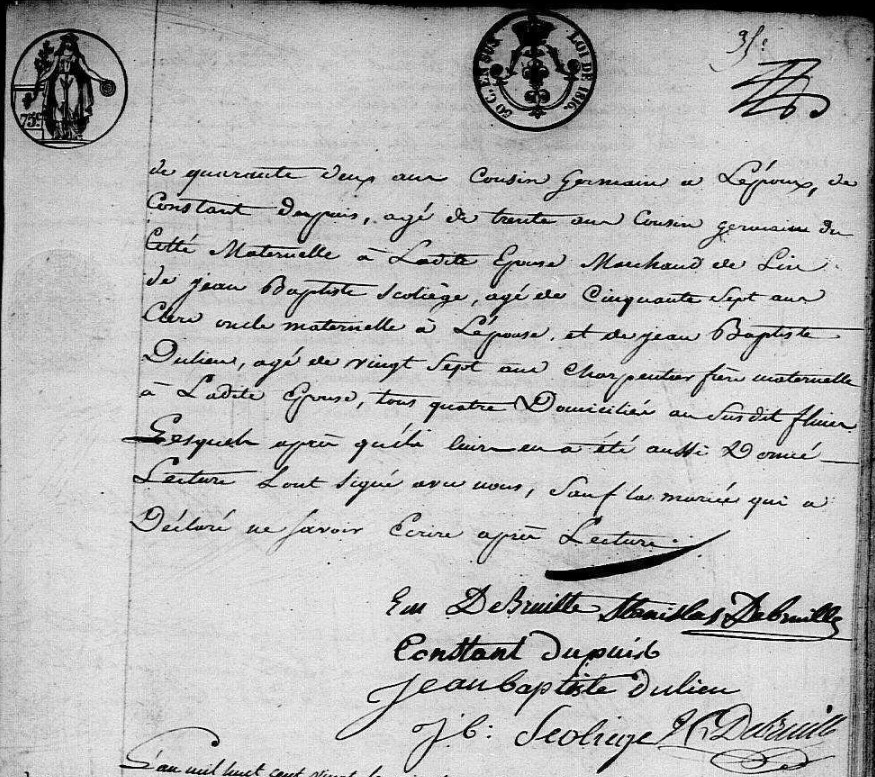 75c
50 C. EN SUS LOI DE 1816.
de quarante deux ans Cousin Germain a L'époux, de
Constant dupuis, agé de trente ans Cousin germain du
Cotté Maternelle à Ladite Epouse Marchand de Lin
de jean Baptiste Scoliège, agé de Cinquante Sept ans
Clerc oncle maternelle à L'épouse, et de jean Baptiste
Dulieu, agé de vingt Sept ans Charpentier frère maternelle
à Ladite Epouse, tous quatre Domicilié au Susdit
Lesquels après qu'élà leur en a été aussi Donné
Lecture L'ont Signé avec nous, Sauf la mariée qui a
Déclaré ne savoir Ecrire après Lecture.
Em DeBruille Stanislas Debruille
Constant Dupuis
jean baptiste dulieu
j b: Scoliege DeBruille
L'an mil huit cent vingt